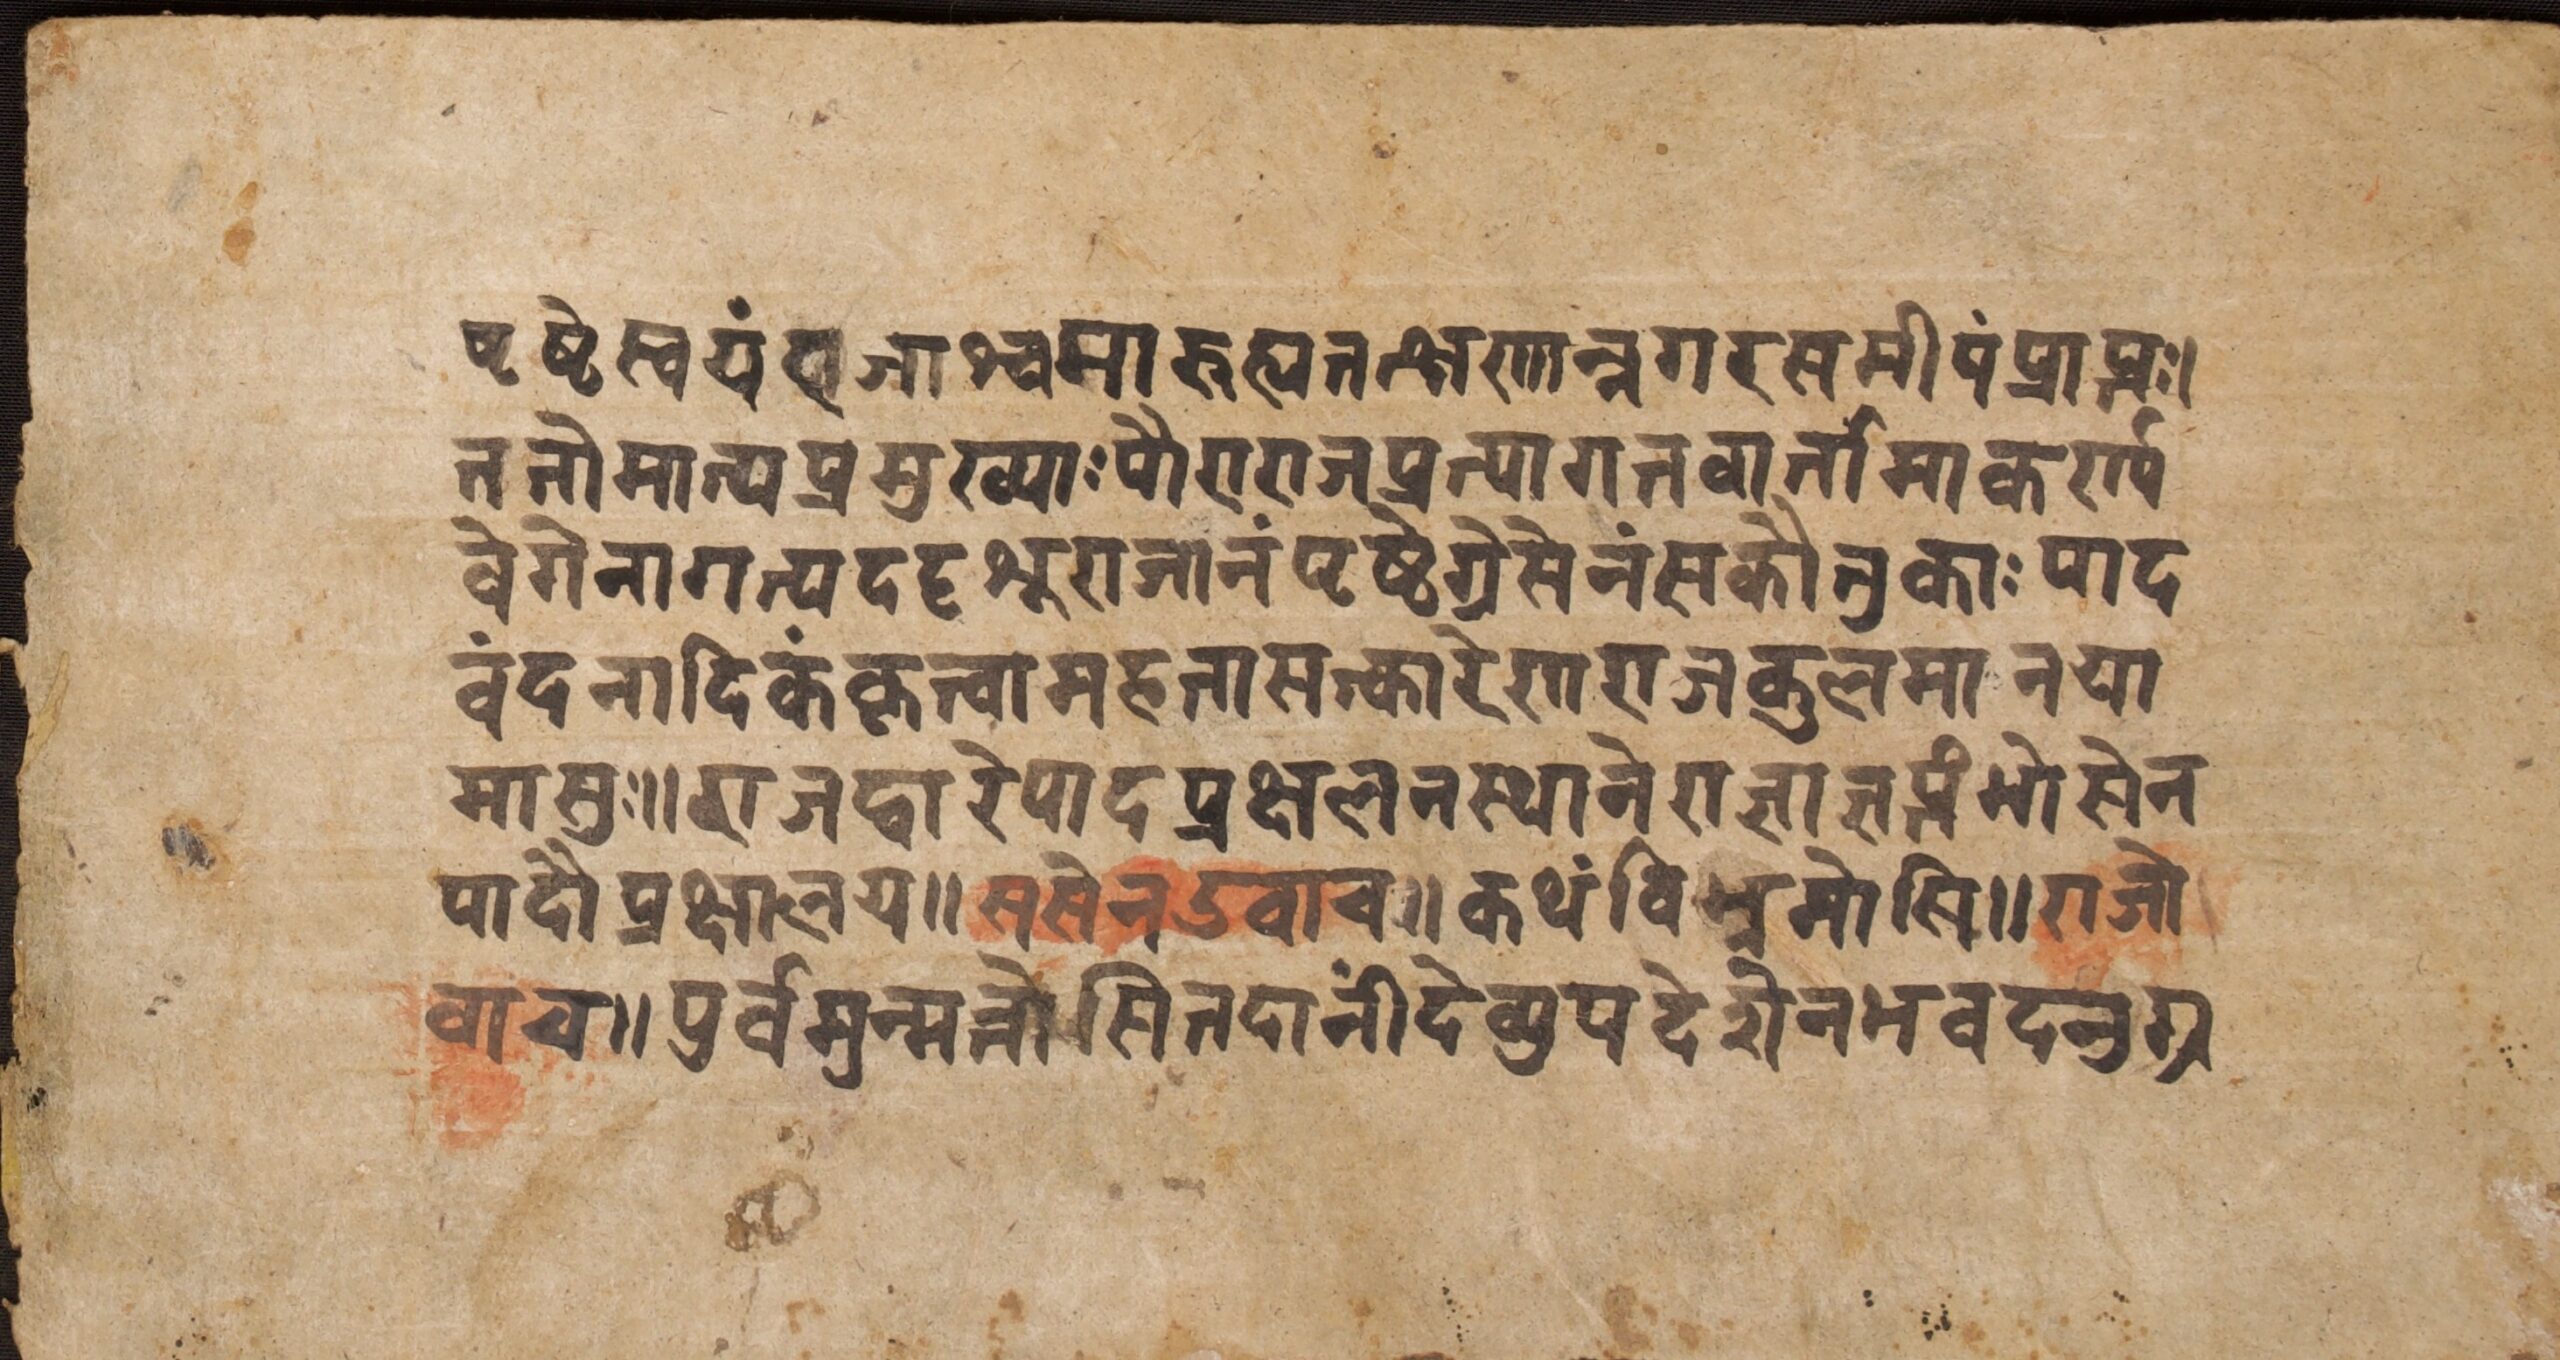 पृष्ठेस्वयंराजाश्वमारुह्यतत्क्षणान्नगरसमीपंप्राप्तः।
ततोमात्यप्रमुख्याःपौराराजप्रत्यागतवार्तामाकर्ण्य
वेगेनागत्यददृशुराजानंपृष्ठेग्रेसेनंसकौतुकाःपाद
वंदनादिकंकृत्वामहतासत्कारेणराजकुलमानया
मासुः॥राजद्वारेपादप्रक्षलनस्थानेराज्ञाज्ञप्तंभोसेन
पादौप्रक्षालय॥ससेनउवाच॥कथंविभ्रमोसि॥राजो
वाच॥पुर्वमुन्मत्तोसितदानींदेव्युपदेशेनभवदनुग्र